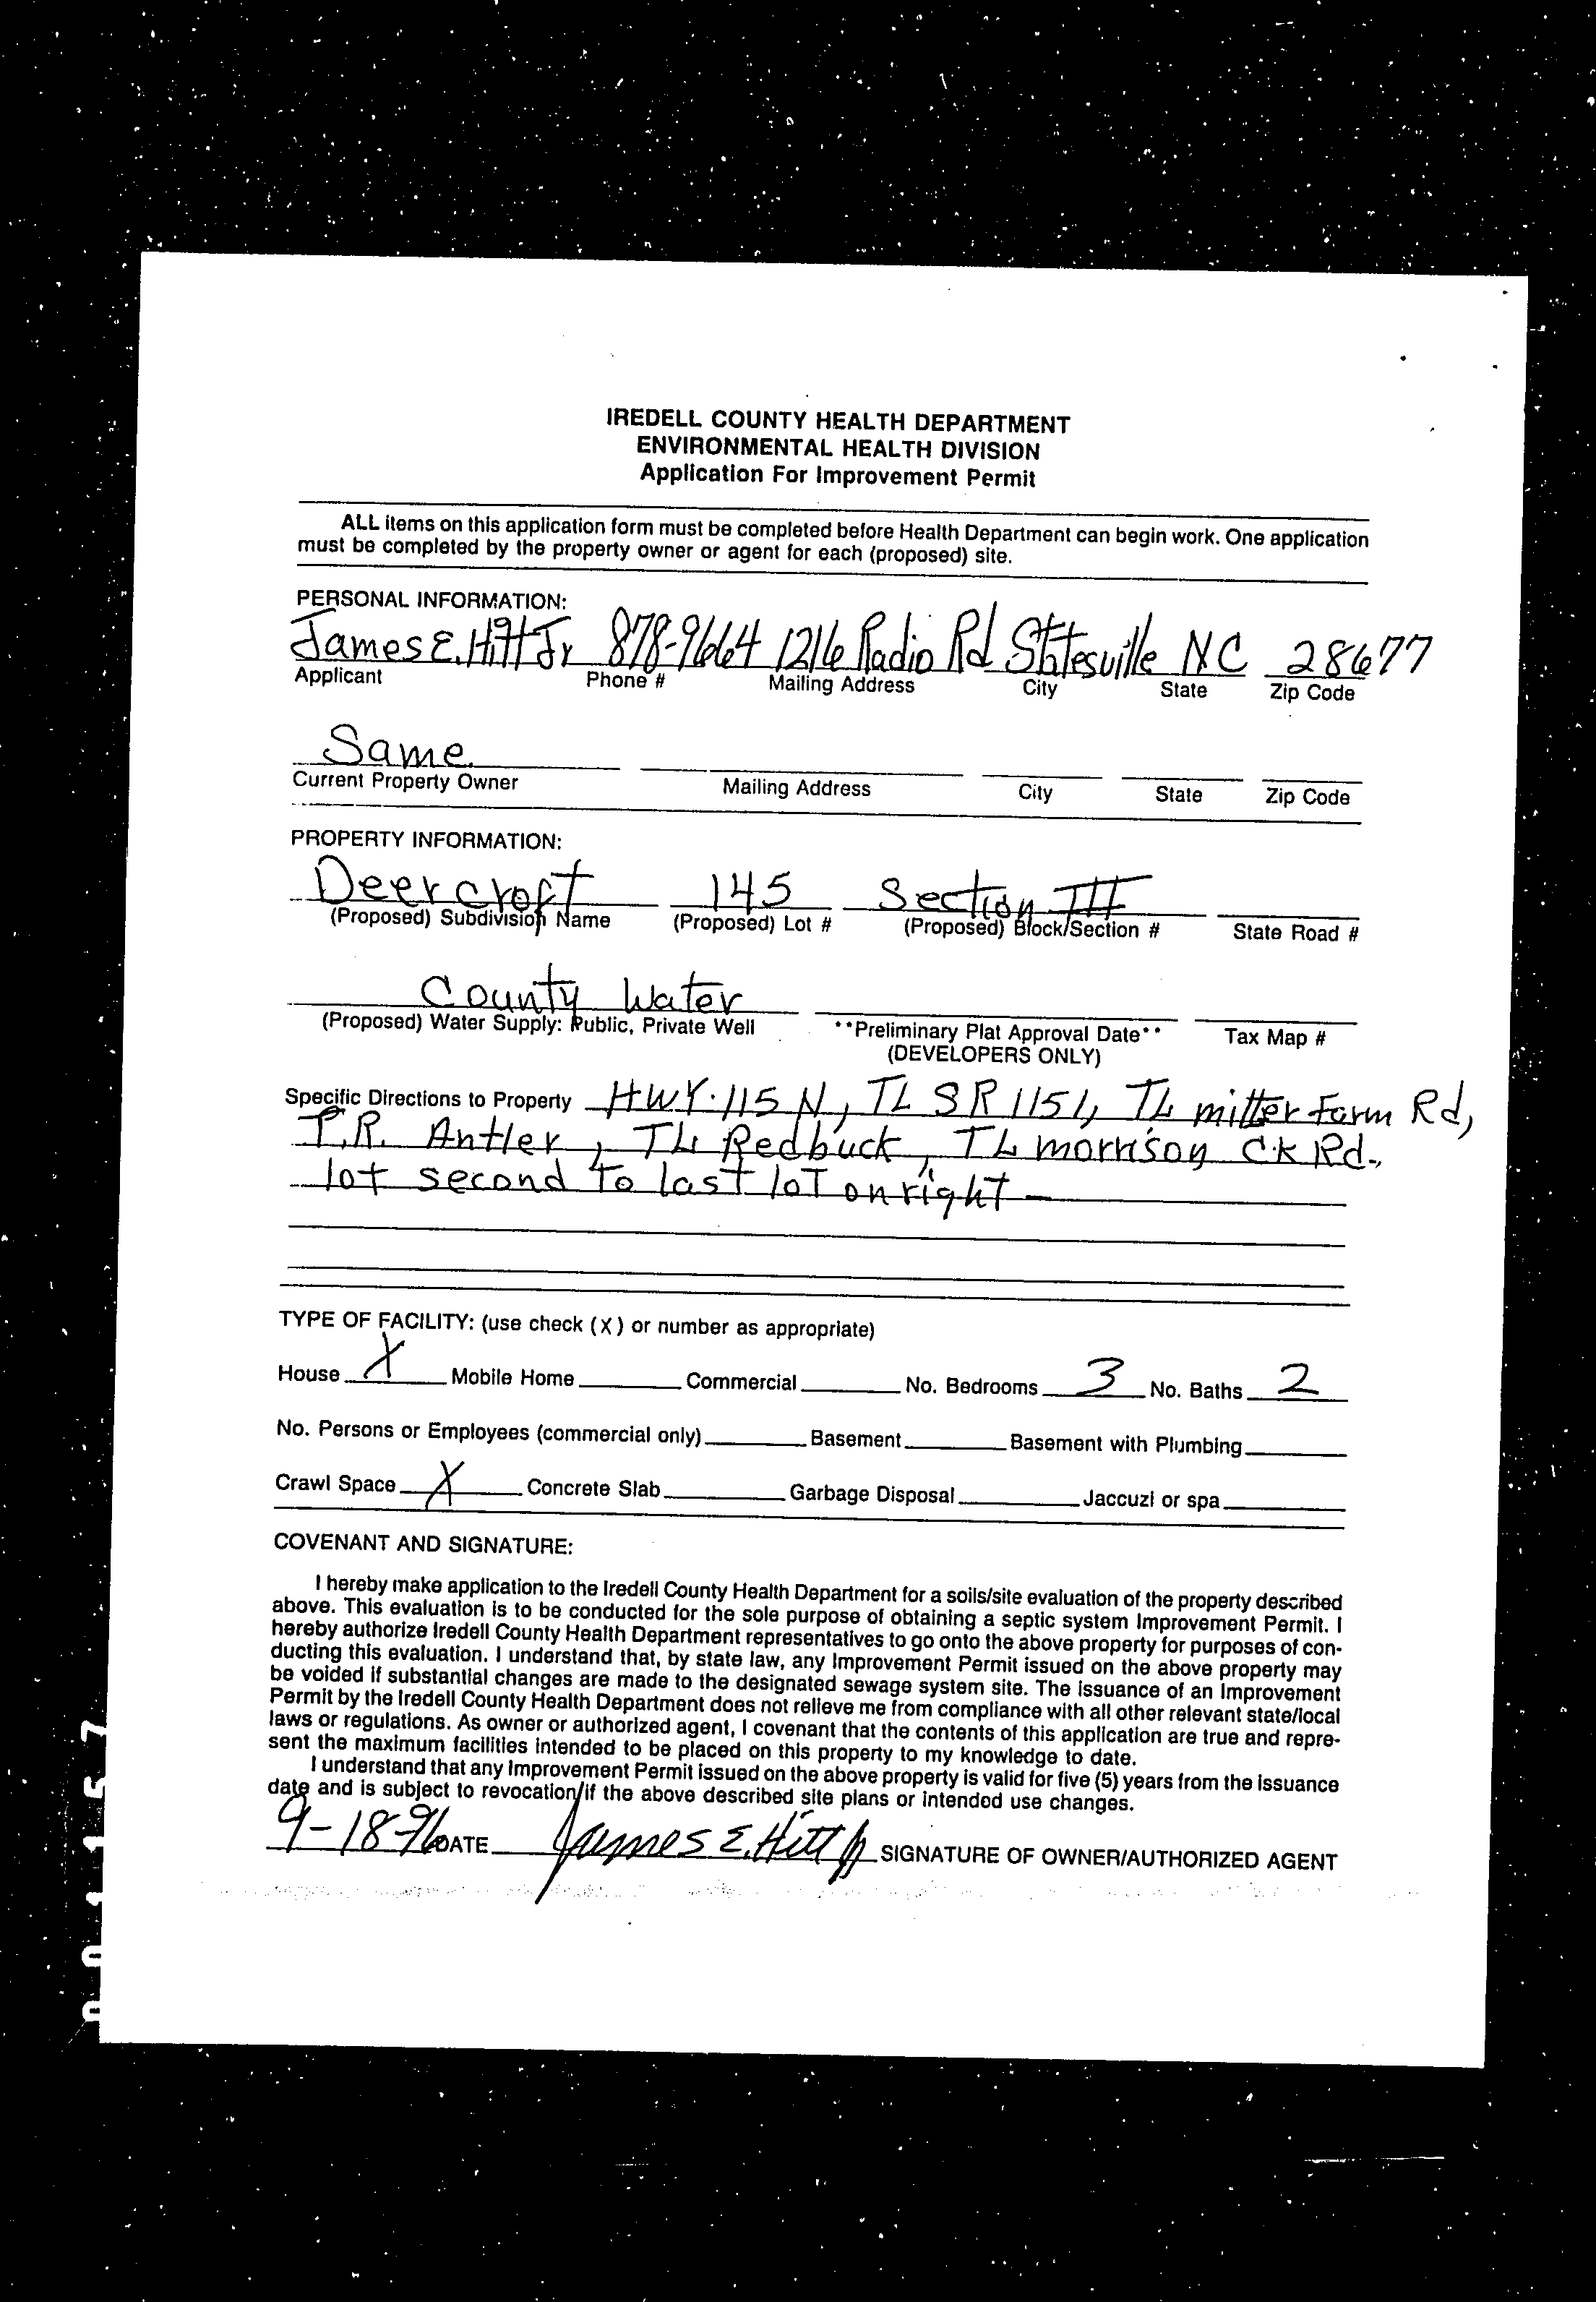 IREDELL COUNTY HEALTH DEPARTMENT
ENVIRONMENTAL HEALTH DIVISION
Application For Improvement Permit
ALL items on this application form must be completed before Health Department can begin work. One application
must be completed by the property owner or agent for each (proposed) site.
PERSONAL INFORMATION:
James E. Hitt Jr 878-9664 1216 Radio Rd Statesville NC 28677
Applicant Phone # Mailing Address City State Zip Code
Same
Current Property Owner Mailing Address City State Zip Code
PROPERTY INFORMATION:
Deercroft 145 Section III
(Proposed) Subdivision Name (Proposed) Lot # (Proposed) Block/Section # State Road #
County Water
(Proposed) Water Supply: Public, Private Well **Preliminary Plat Approval Date** Tax Map #
(DEVELOPERS ONLY)
Specific Directions to Property HWY. 115 N, TL SR 1151, TL Farm Rd,
T.R. Antler, TL Redbuck, TL morrison CK Rd.,
lot second to last lot on right -
TYPE OF FACILITY: (use check (X) or number as appropriate)
House X Mobile Home Commercial No. Bedrooms 3 No. Baths 2
No. Persons or Employees (commercial only) Basement Basement with Plumbing
Crawl Space X Concrete Slab Garbage Disposal Jaccuzi or spa
COVENANT AND SIGNATURE:
I hereby make application to the Iredell County Health Department for a soils/site evaluation of the property described
above. This evaluation is to be conducted for the sole purpose of obtaining a septic system Improvement Permit. I
hereby authorize Iredell County Health Department representatives to go onto the above property for purposes of con-
ducting this evaluation. I understand that, by state law, any Improvement Permit issued on the above property may
be voided if substantial changes are made to the designated sewage system site. The issuance of an Improvement
Permit by the Iredell County Health Department does not relieve me from compliance with all other relevant state/local
laws or regulations. As owner or authorized agent, I covenant that the contents of this application are true and repre-
sent the maximum facilities intended to be placed on this property to my knowledge to date.
I understand that any Improvement Permit issued on the above property is valid for five (5) years from the issuance
date and is subject to revocation if the above described site plans or intended use changes.
9-18-96 DATE James E. Hitt Jr SIGNATURE OF OWNER/AUTHORIZED AGENT